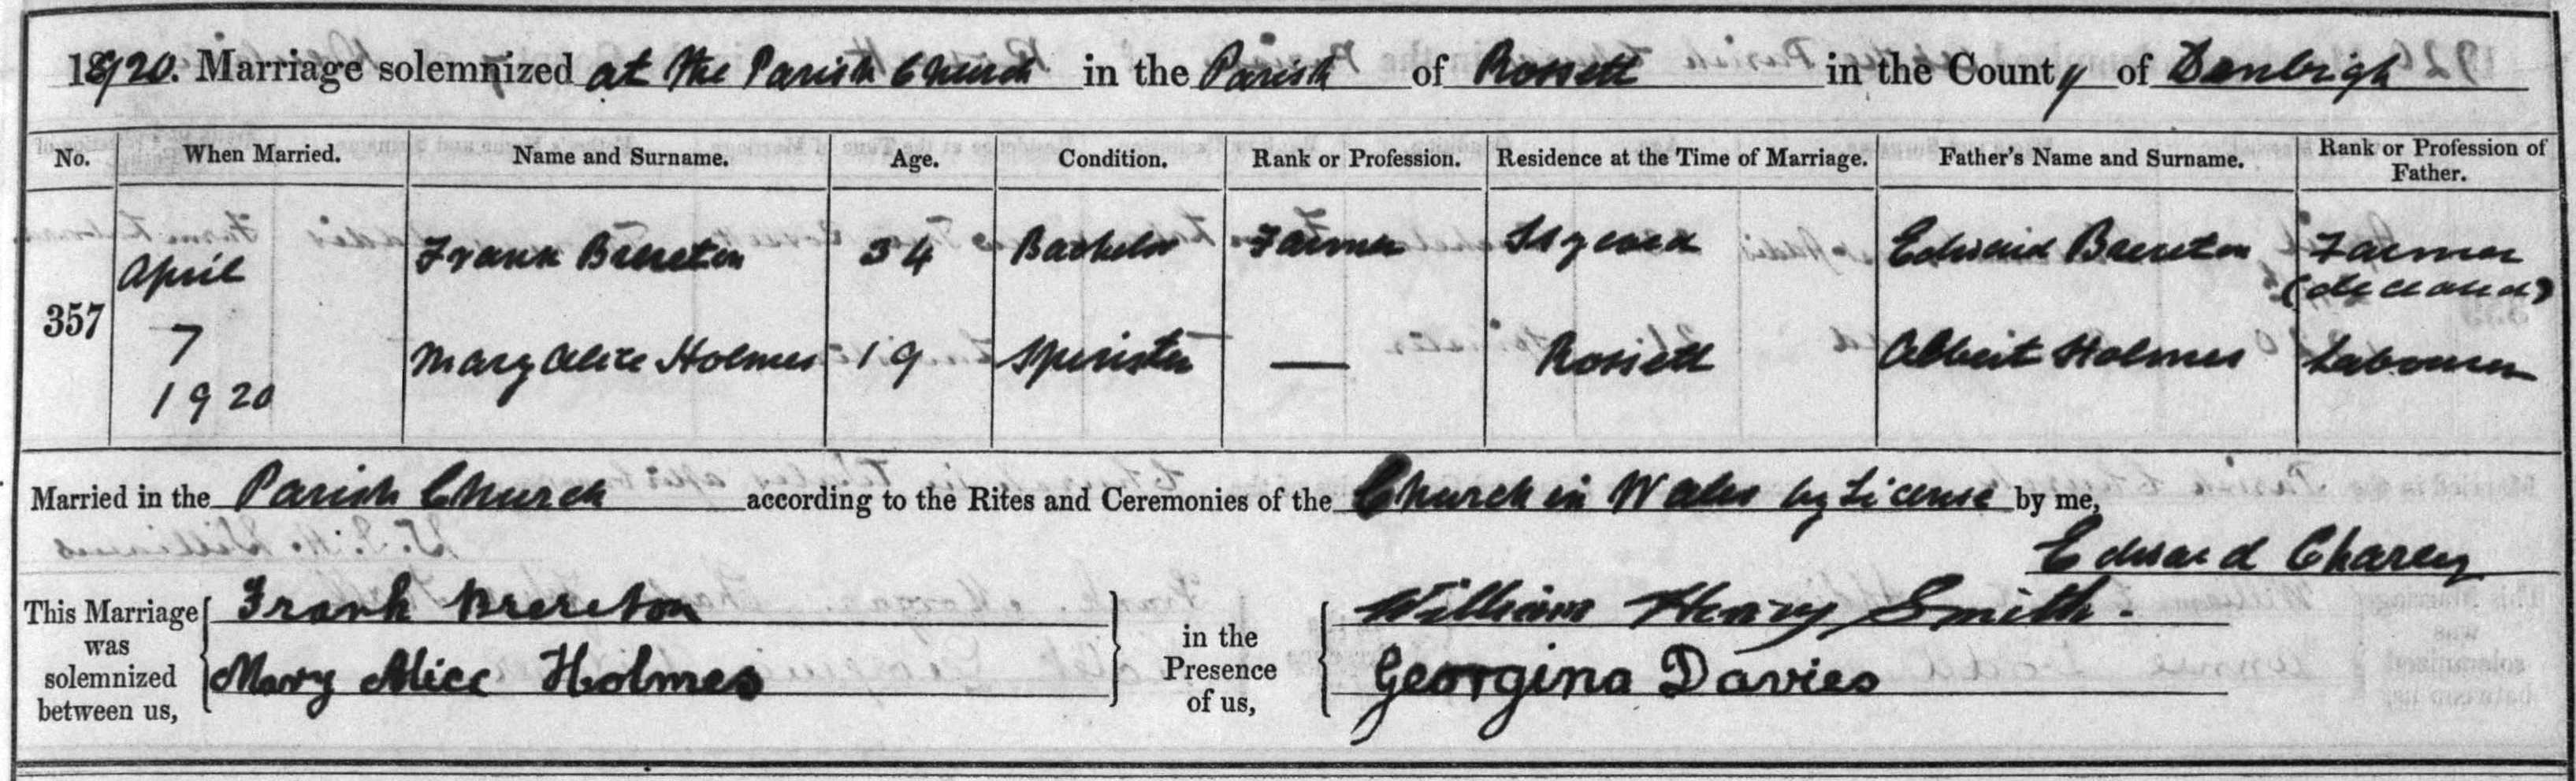 1920. Marriage solemnized at the Parish Church in the Parish of Rossett in the County of Denbigh
No. When Married. Name and Surname. Age. Condition. Rank or Profession. Residence at the Time of Marriage. Father's Name and Surname. Rank or Profession of Father.
357 April 7 1920
Frank Brereton 34 Bachelor Farmer Isycoed Edward Brereton Farmer (deceased)
Mary Alice Holmes 19 Spinster — Rossett Albert Holmes Labourer
Married in the Parish Church according to the Rites and Ceremonies of the Church in Wales by License by me,
Edward Charley
This Marriage was solemnized between us,
Frank Brereton
Mary Alice Holmes
in the Presence of us,
William Henry Smith.
Georgina Davies